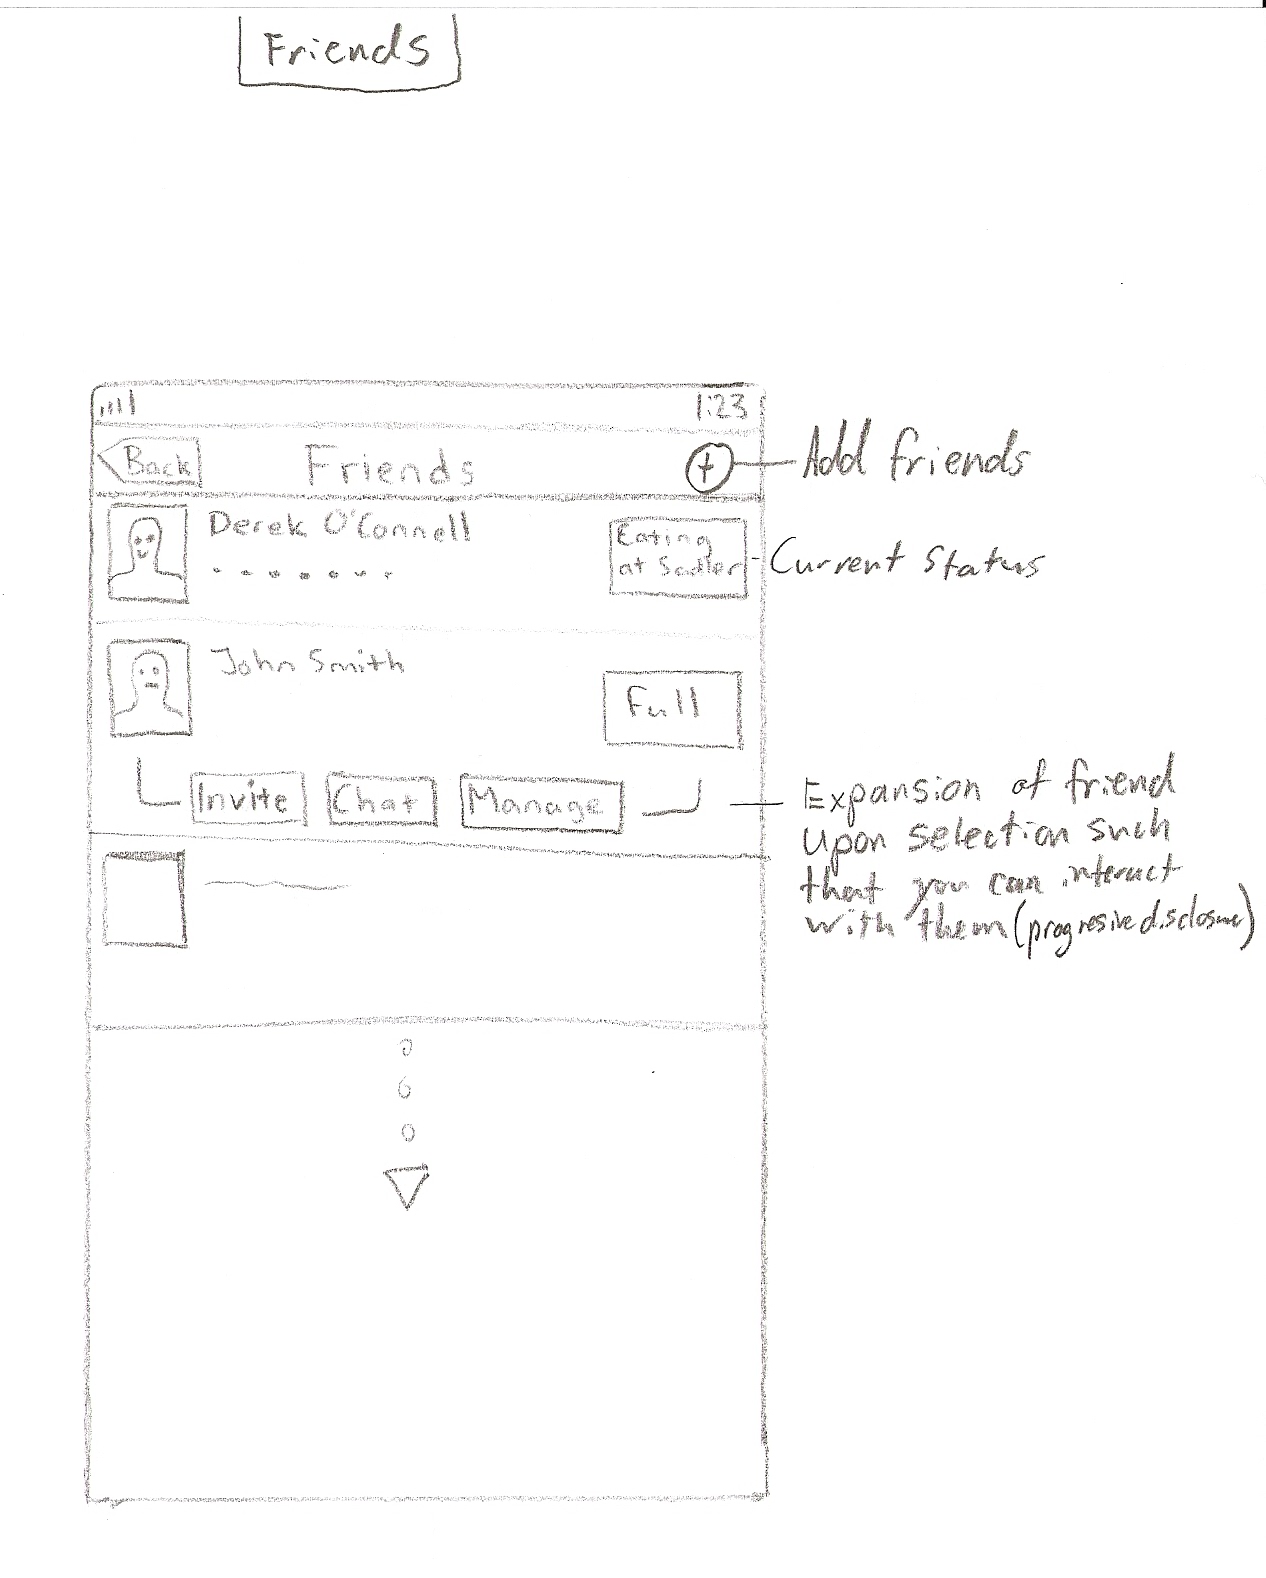 Friends
1:23
Back
Friends
+
Add friends
Derek O'Connell
Eating
at Sadler
Current Status
John Smith
Full
Invite
Chat
Manage
Expansion of friend
Upon selection such
that you can interact
with them (progresive disclosure)